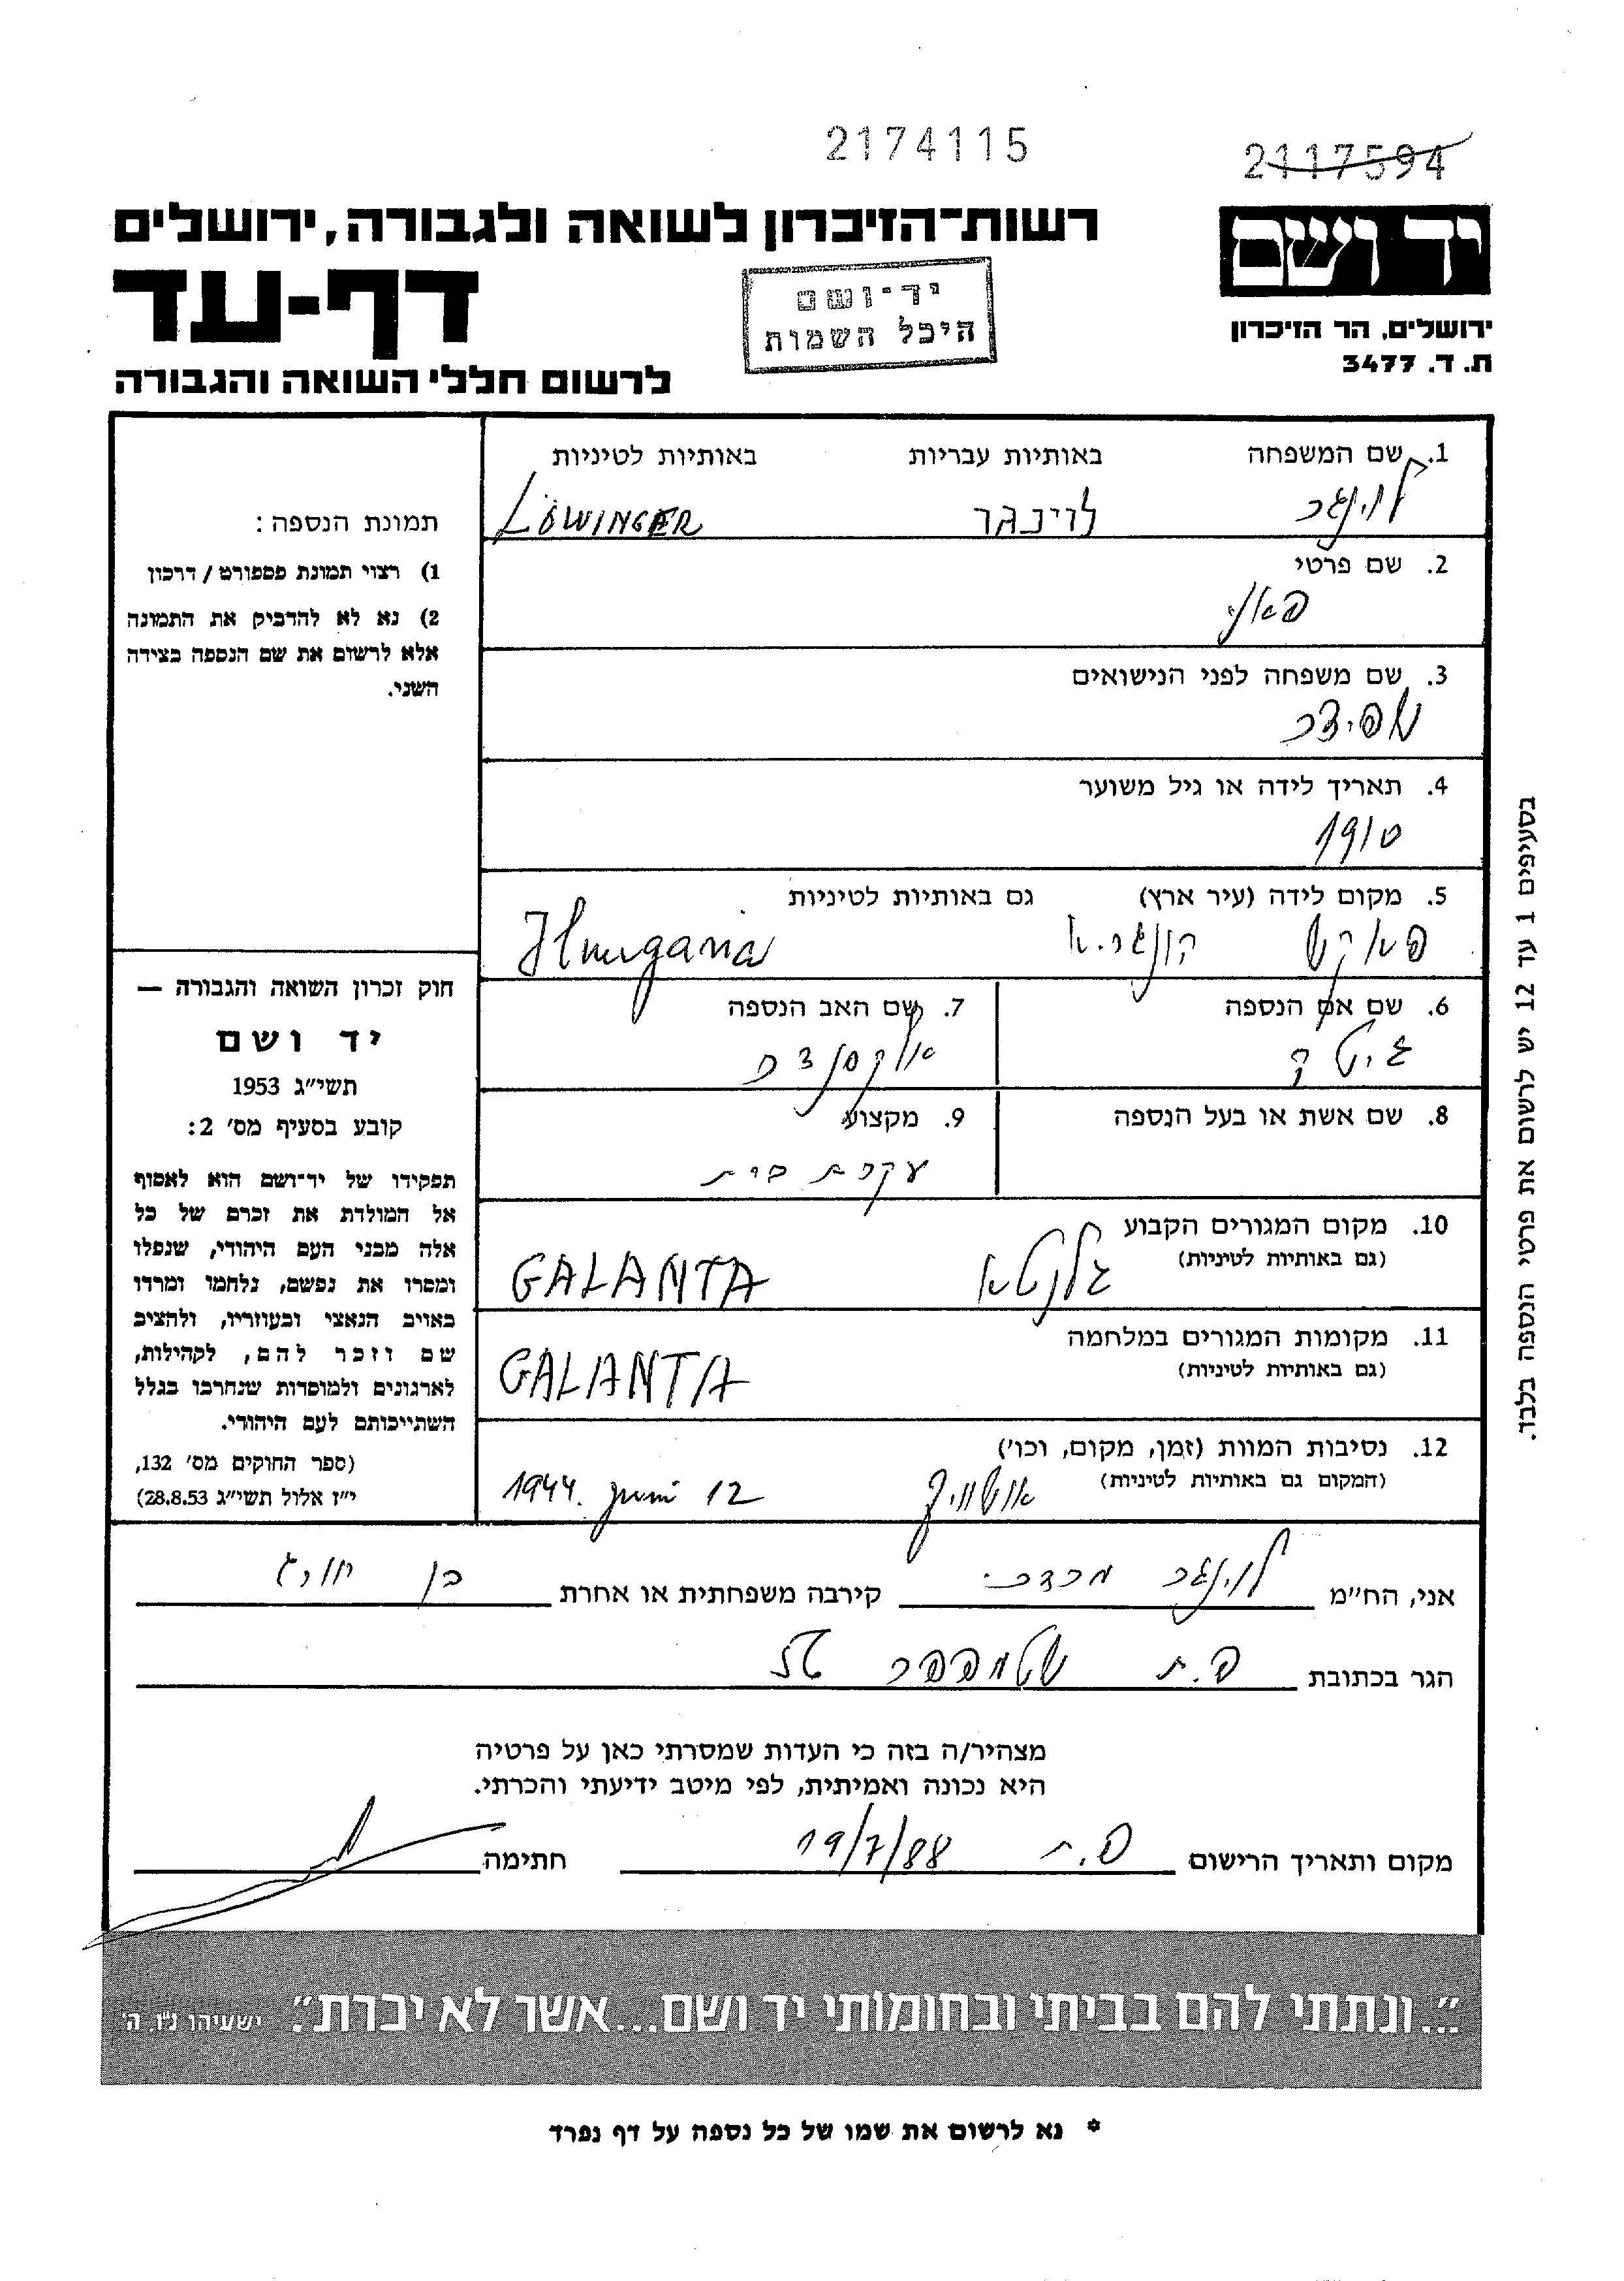 2174115
2117594
יד ושם
רשות־הזיכרון לשואה ולגבורה, ירושלים
דף-עד
יד-ושם
היכל השמות
ירושלים, הר הזיכרון
ת. ד. 3477
לרשום חללי השואה והגבורה
1. שם המשפחה באותיות עבריות באותיות לטיניות
לוינגר לוינגר LÖWINGER
2. שם פרטי
פאני
3. שם משפחה לפני הנישואים
שפיצר
4. תאריך לידה או גיל משוער
1910
5. מקום לידה (עיר ארץ) גם באותיות לטיניות
הונגריא
6. שם אם הנספה
7. שם האב הנספה
8. שם אשת או בעל הנספה
9. מקצוע
עקרת בית
10. מקום המגורים הקבוע
(גם באותיות לטיניות)
גלנטא GALANTA
11. מקומות המגורים במלחמה
(גם באותיות לטיניות)
GALANTA
12. נסיבות המוות (זמן, מקום, וכו')
(המקום גם באותיות לטיניות)
אושוויץ 1944. juni 12
תמונת הנספה:
1) רצוי תמונת פספורט / דרכון
2) נא לא להדביק את התמונה
אלא לרשום את שם הנספה בצידה
השני.
חוק זכרון השואה והגבורה —
יד ושם
תשי"ג 1953
קובע בסעיף מס' 2:
תפקידו של יד־ושם הוא לאסוף
אל המולדת את זכרם של כל
אלה מבני העם היהודי, שנפלו
ומסרו את נפשם, נלחמו ומרדו
באויב הנאצי ובעוזריו, ולהציב
שם וזכר להם, לקהילות,
לארגונים ולמוסדות שנחרבו בגלל
השתייכותם לעם היהודי.
(ספר החוקים מס' 132,
י"ז אלול תשי"ג 28.8.53)
בסעיפים 1 עד 12 יש לרשום את פרטי הנספה בלבד.
אני, הח"מ לוינגר מרדכי קירבה משפחתית או אחרת בן חורג
הגר בכתובת פ.ת שטמפפר
מצהיר/ה בזה כי העדות שמסרתי כאן על פרטיה
היא נכונה ואמיתית, לפי מיטב ידיעתי והכרתי.
מקום ותאריך הרישום פ.ת 19/7/88 חתימה
"...ונתתי להם בביתי ובחומותי יד ושם...אשר לא יכרת". ישעיהו נ"ו, ה'
* נא לרשום את שמו של כל נספה על דף נפרד